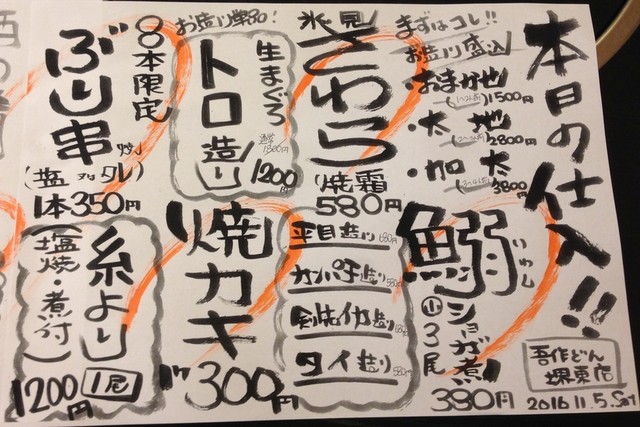 本日の仕入!!
まずはコレ!!
お造り盛込
・おまかせ
1500円
・太地
2800円
・加太
3800円
鰯
いわし
ショガ煮
小3尾
380円
吾作どん
堺東店
2016.11.5.Sat
氷見
さわら
焼霜
580円
平目造り 680円
カンパチ造り
剣先イカ造り
タイ造り
お造り単品!
生まぐろ
トロ造り
1200円
焼カキ
300円
8本限定
ぶり串
(塩 タレ)
1本350円
糸より
(塩焼・煮付)
1200円
1尾